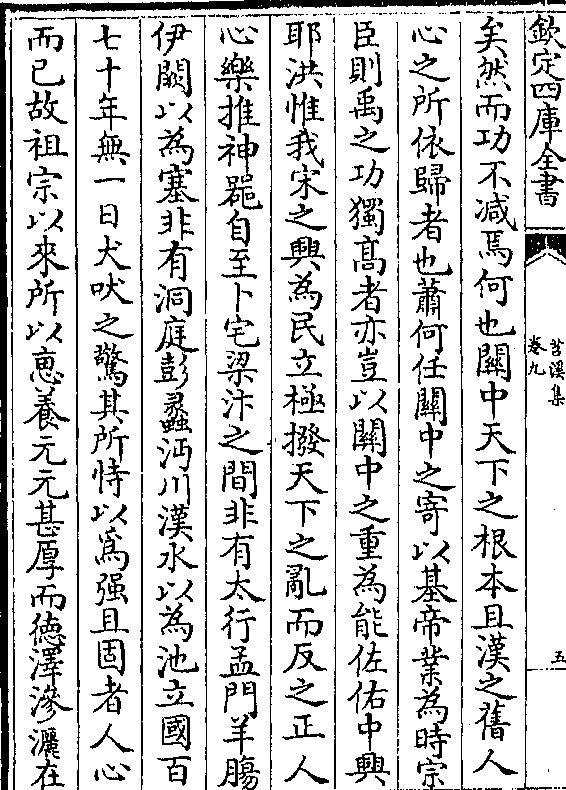 欽定四庫全書
苕溪集
卷九
五
矣然而功不减焉何也關中天下之根本且漢之舊人
心之所依歸者也蕭何任關中之寄以基帝業為時宗
臣則禹之功獨髙者亦豈以關中之重為能佐佑中興
耶洪惟我宋之興為民立極撥天下之亂而反之正人
心樂推神器自至卜宅梁汴之間非有太行孟門羊膓
伊闕以為塞非有洞庭彭蠡沔川漢水以為池立國百
七十年無一日犬吠之驚其所恃以為强且固者人心
而已故祖宗以來所以惠養元元甚厚而徳澤滲灑在